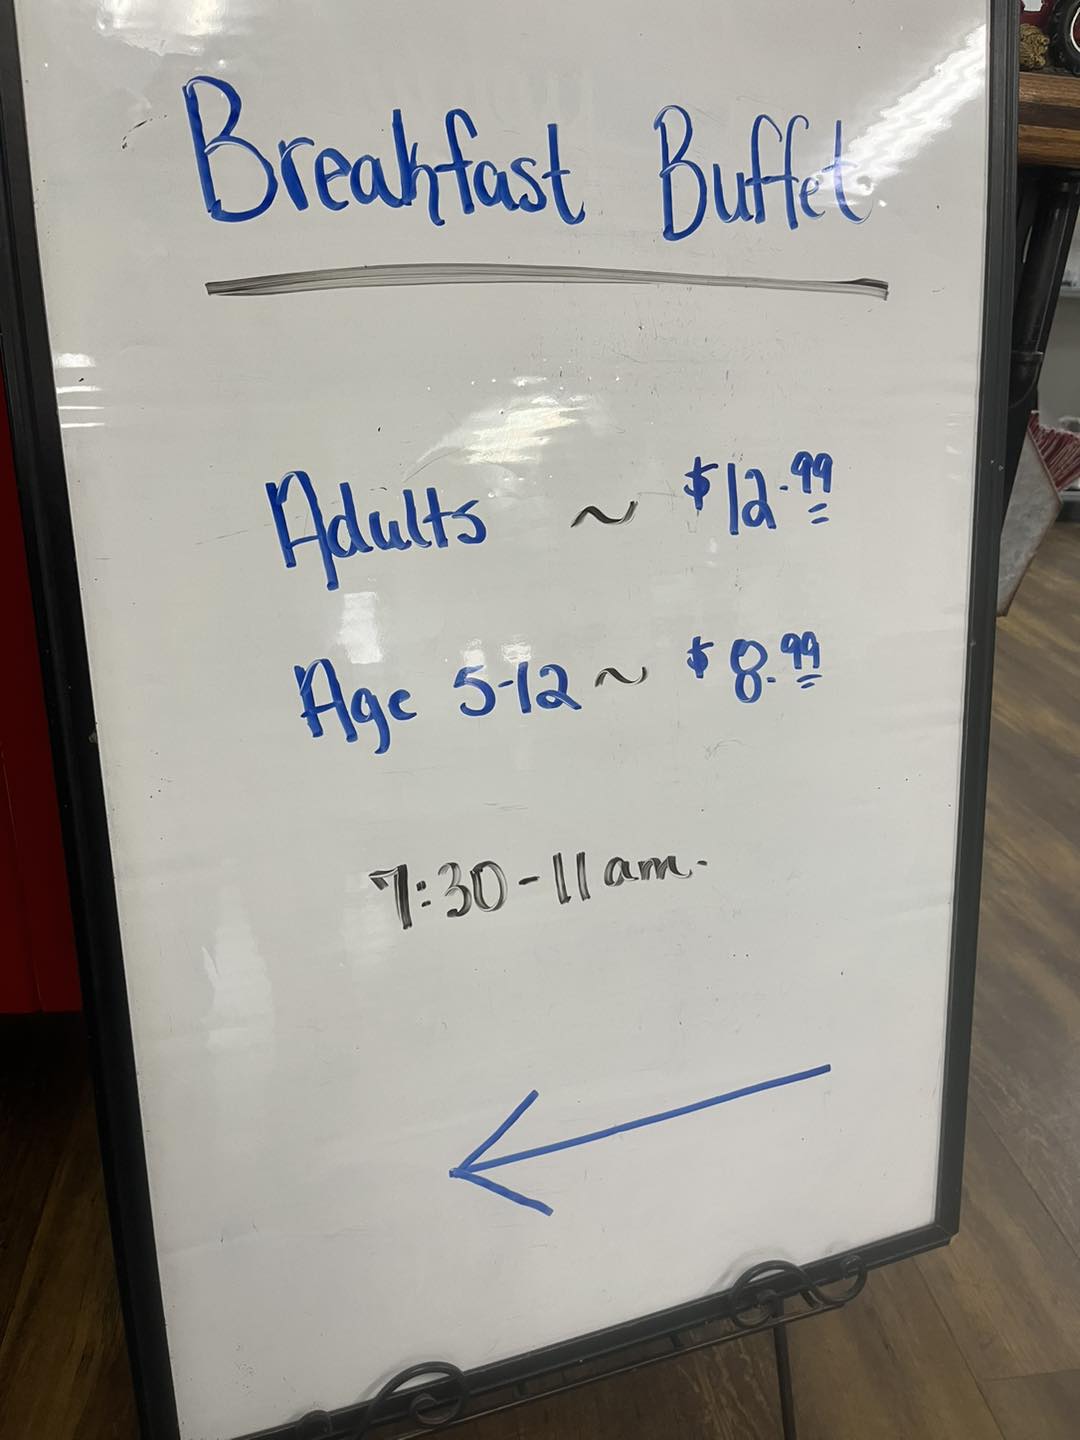 Breakfast Buffet
Adults ~ $12.99
Age 5-12 ~ $8.99
7:30-11am.